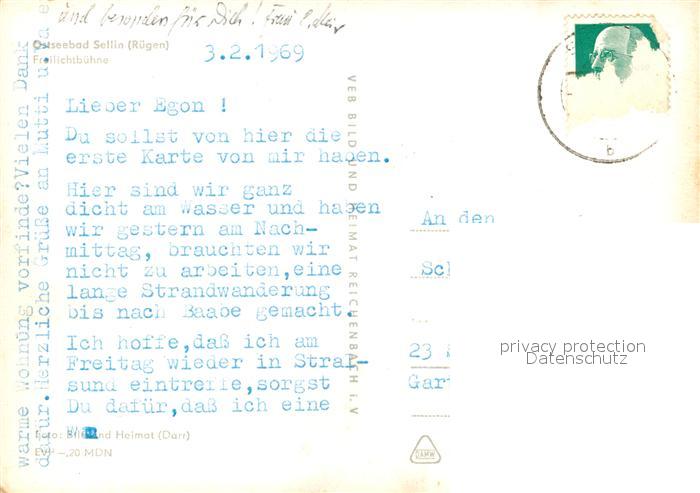 und besonders für Dich!
Ostseebad Sellin (Rügen)
Freilichtbühne
3.2.1969
Lieber Egon !
Du sollst von hier die
erste Karte von mir haben.
Hier sind wir ganz
dicht am Wasser und haben
wir gestern am Nach-
mittag, brauchten wir
nicht zu arbeiten,eine
lange Strandwanderung
bis nach Baabe gemacht.
Ich hoffe,daß ich am
Freitag wieder in Stral-
sund eintreffe,sorgst
Du dafür,daß ich eine
warme Wohnung vorfinde?Vielen Dank
dafür.Herzliche Grüße an Mutti
Foto: Bild und Heimat (Darr)
EVP —,20 MDN
VEB BILD UND HEIMAT REICHENBACH i. V
b
An den
Sch
23
Gart
DAMW
privacy protection
Datenschutz